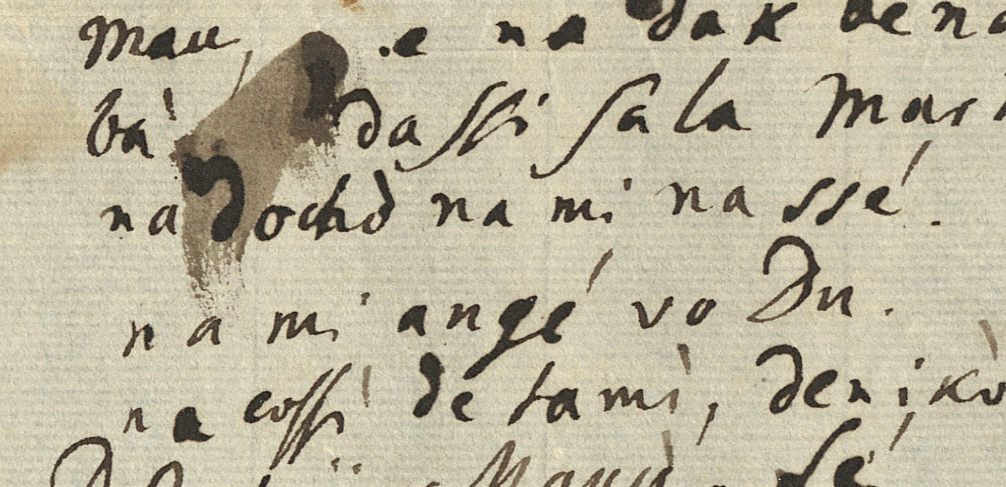 mau, na dak bena
bà dassi sala mar
na dochò na mi na ssé.
na mi angé vo Du.
na cossì de tamì, denikò